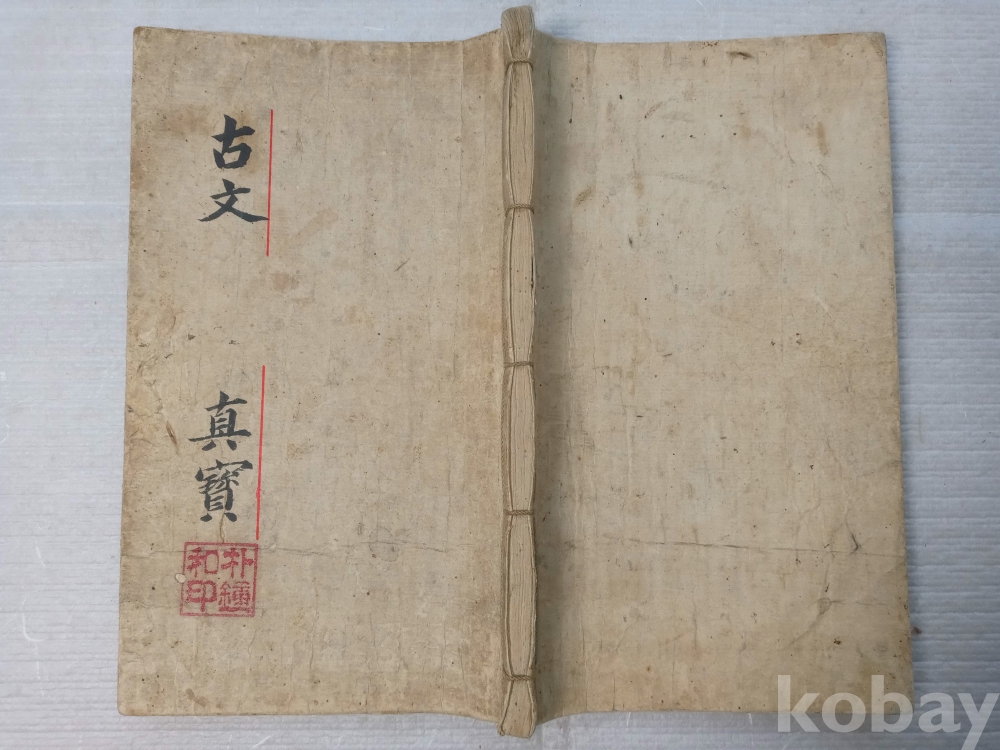 古文
真寶
朴鍾
和印
kobay